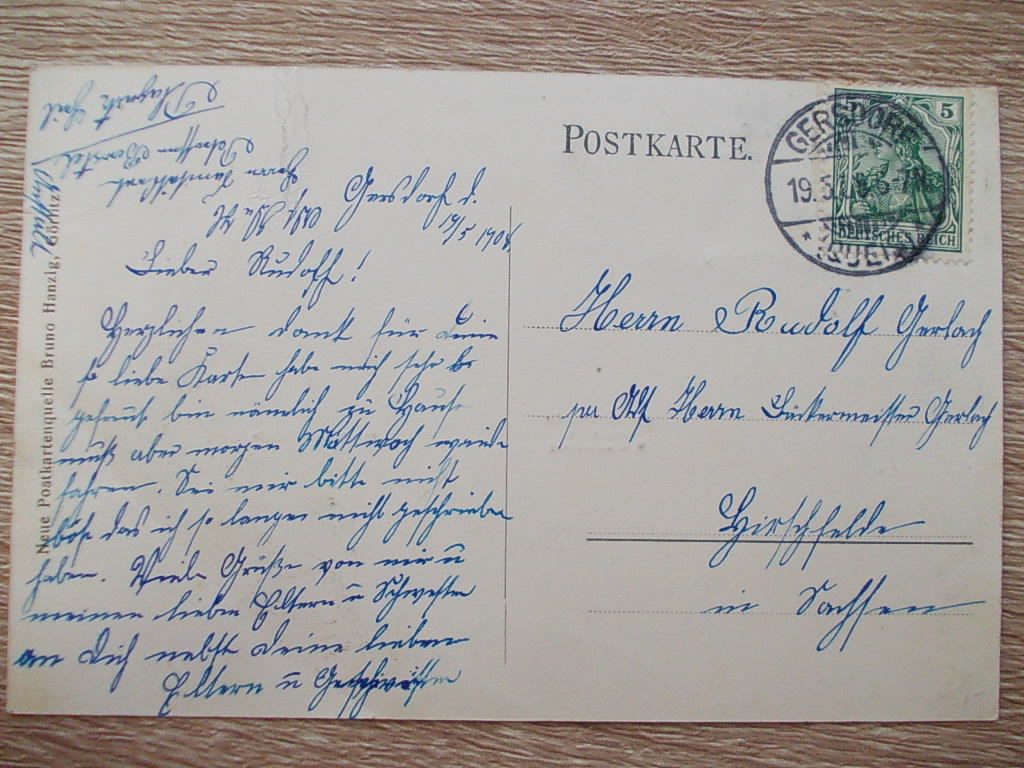 POSTKARTE.
5
5
GERSDORF
19.5
QUEIS
DEUTSCHES REICH
Gersdorf d.
19/5 1908
Lieber Rudolf!
Herzlichen dank für deine
so liebe Karte habe mich sehr
gefreut bin nämlich zu Hause
muß aber morgen Mittwoch wieder
fahren. Sei mir bitte nicht
böse das ich so lange nicht geschrieben
habe. Viele Grüße von mir u
meinen lieben Eltern u Schwestern
an Dich nebst deine lieben
Eltern u Geschwistern
Herrn
Herrn Rudolf Gerlach
per Adr Herrn Bäckermeister Gerlach
Hirschfelde
in Sachsen
Neue Postkartenquelle Bruno Hanzig, Görlitz